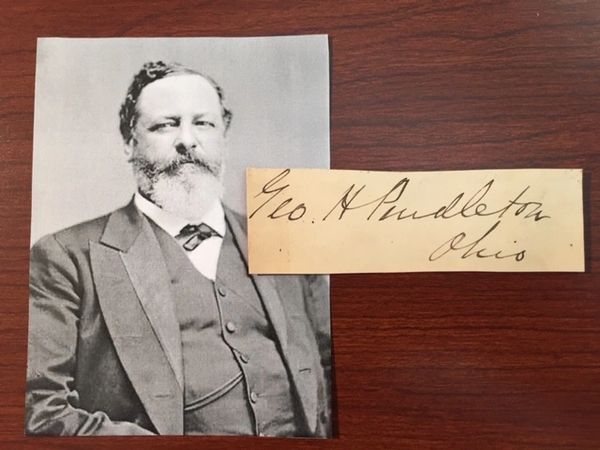 Geo. H Pendleton
Ohio